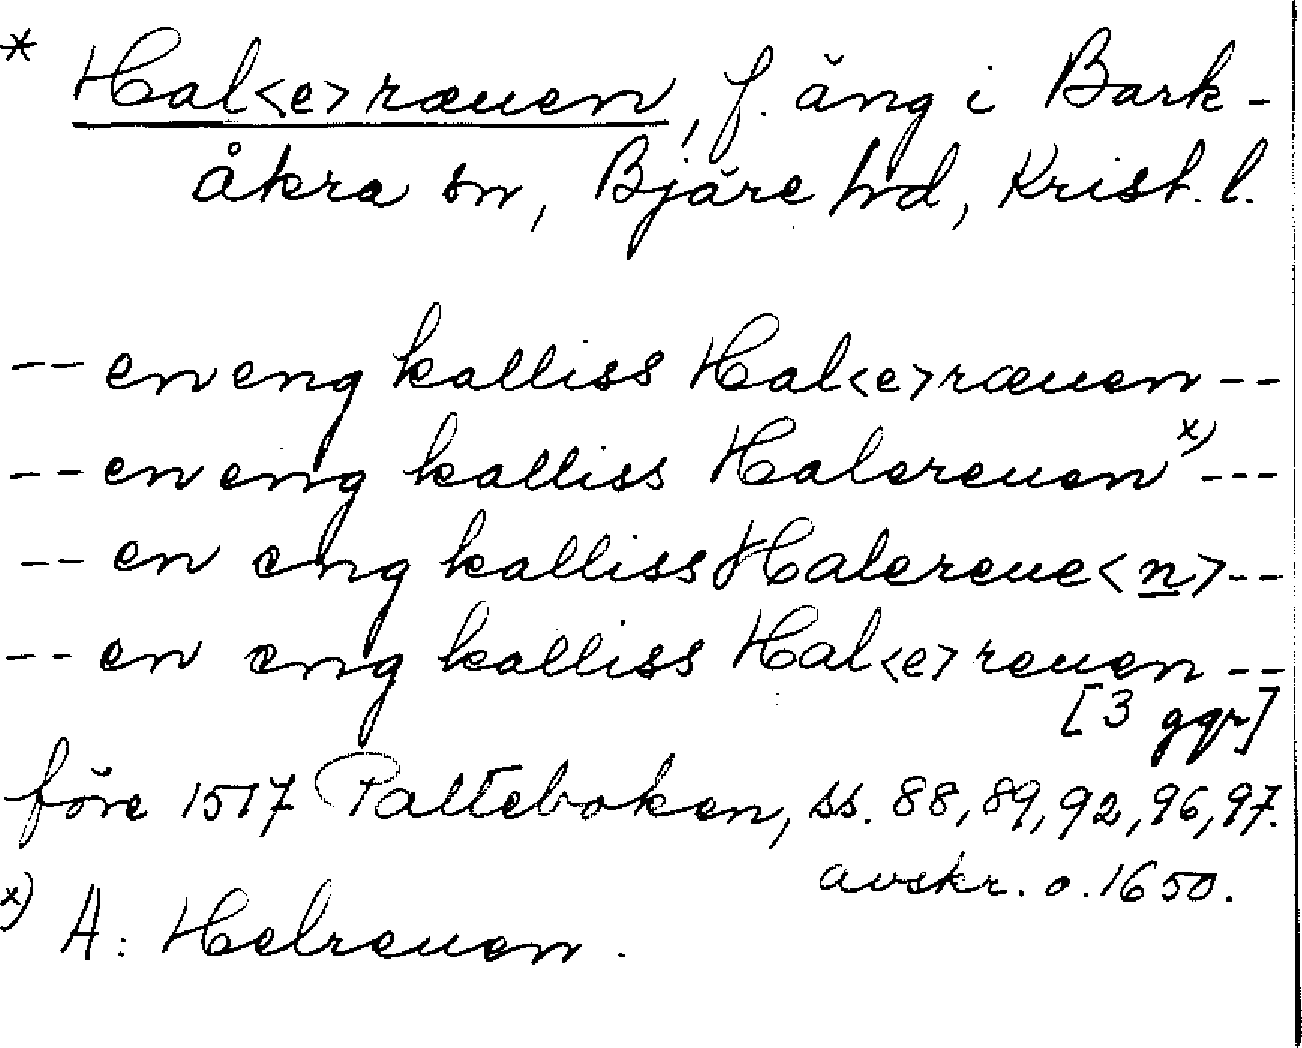 * Hal<e>ræuen, f. äng i Bark-
åkra sn, Bjäre hd, Krist. l.
-- en eng kalliss Hal<e>ræuen --
-- en eng kalliss Halereuen x) ---
-- en eng kalliss Halereue<n> --
-- en eng kalliss Hal<e>reuen --
[3 ggr]
före 1517 Palteboken, ss. 88, 89, 92, 96, 97.
avskr. o. 1650.
x) A: Helreuen.